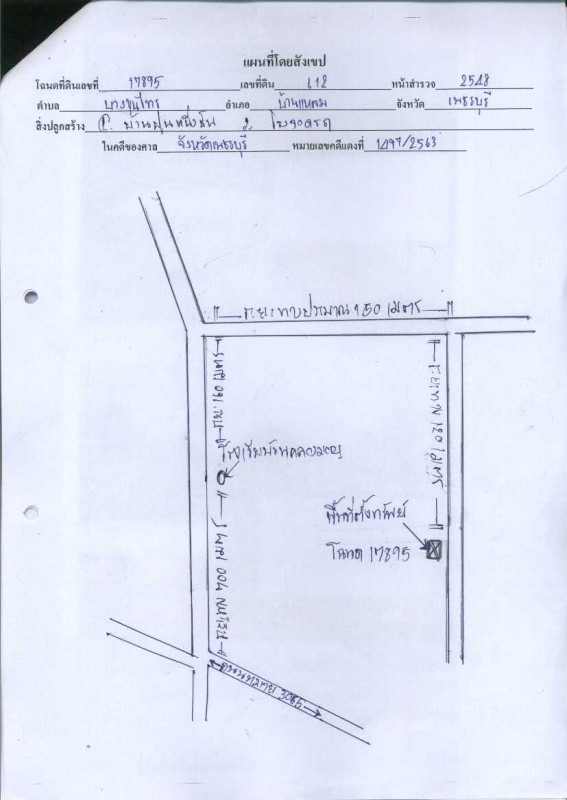 แผนที่โดยสังเขป
โฉนดที่ดินเลขที่ 17895 เลขที่ดิน 112 หน้าสำรวจ 2548
ตำบล บางขุนไทร อำเภอ บ้านแหลม จังหวัด เพชรบุรี
สิ่งปลูกสร้าง 1. บ้านปูนหนึ่งชั้น 2. โรงจอดรถ
ในคดีของศาล จังหวัดเพชรบุรี หมายเลขคดีแดงที่ 1497/2563
ระยะทางประมาณ 150 เมตร
ระยะทาง 120 เมตร
โรงเรียนบ้านคลองมอญ
พื้นที่ตั้งทรัพย์
โฉนด 17895
ถนนหมายเลข